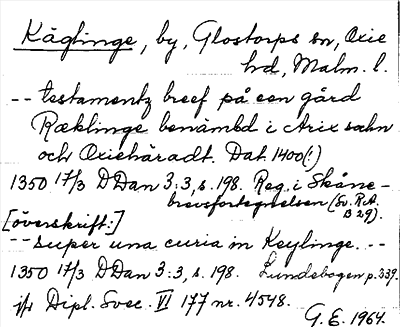 Käglinge, by, Glostorps sn, Oxie
hd, Malm. l.
-- testamentz breef på een gård
Ræklinge benämbd i Arix sochn
och Oxiehäradt. Dat. 1400(!)
1350 17/3 DDan 3:3, s. 198. Reg. i Skåne-
brevsfortegnelsen (Sv. R.A.
B 29).
[överskrift:]
-- super una curia in Keylinge. --
1350 17/3 DDan 3:3, s. 198. Lundebogen p. 339.
jfr Dipl. Svec. VI 177 nr. 4548.
G. E. 1964.